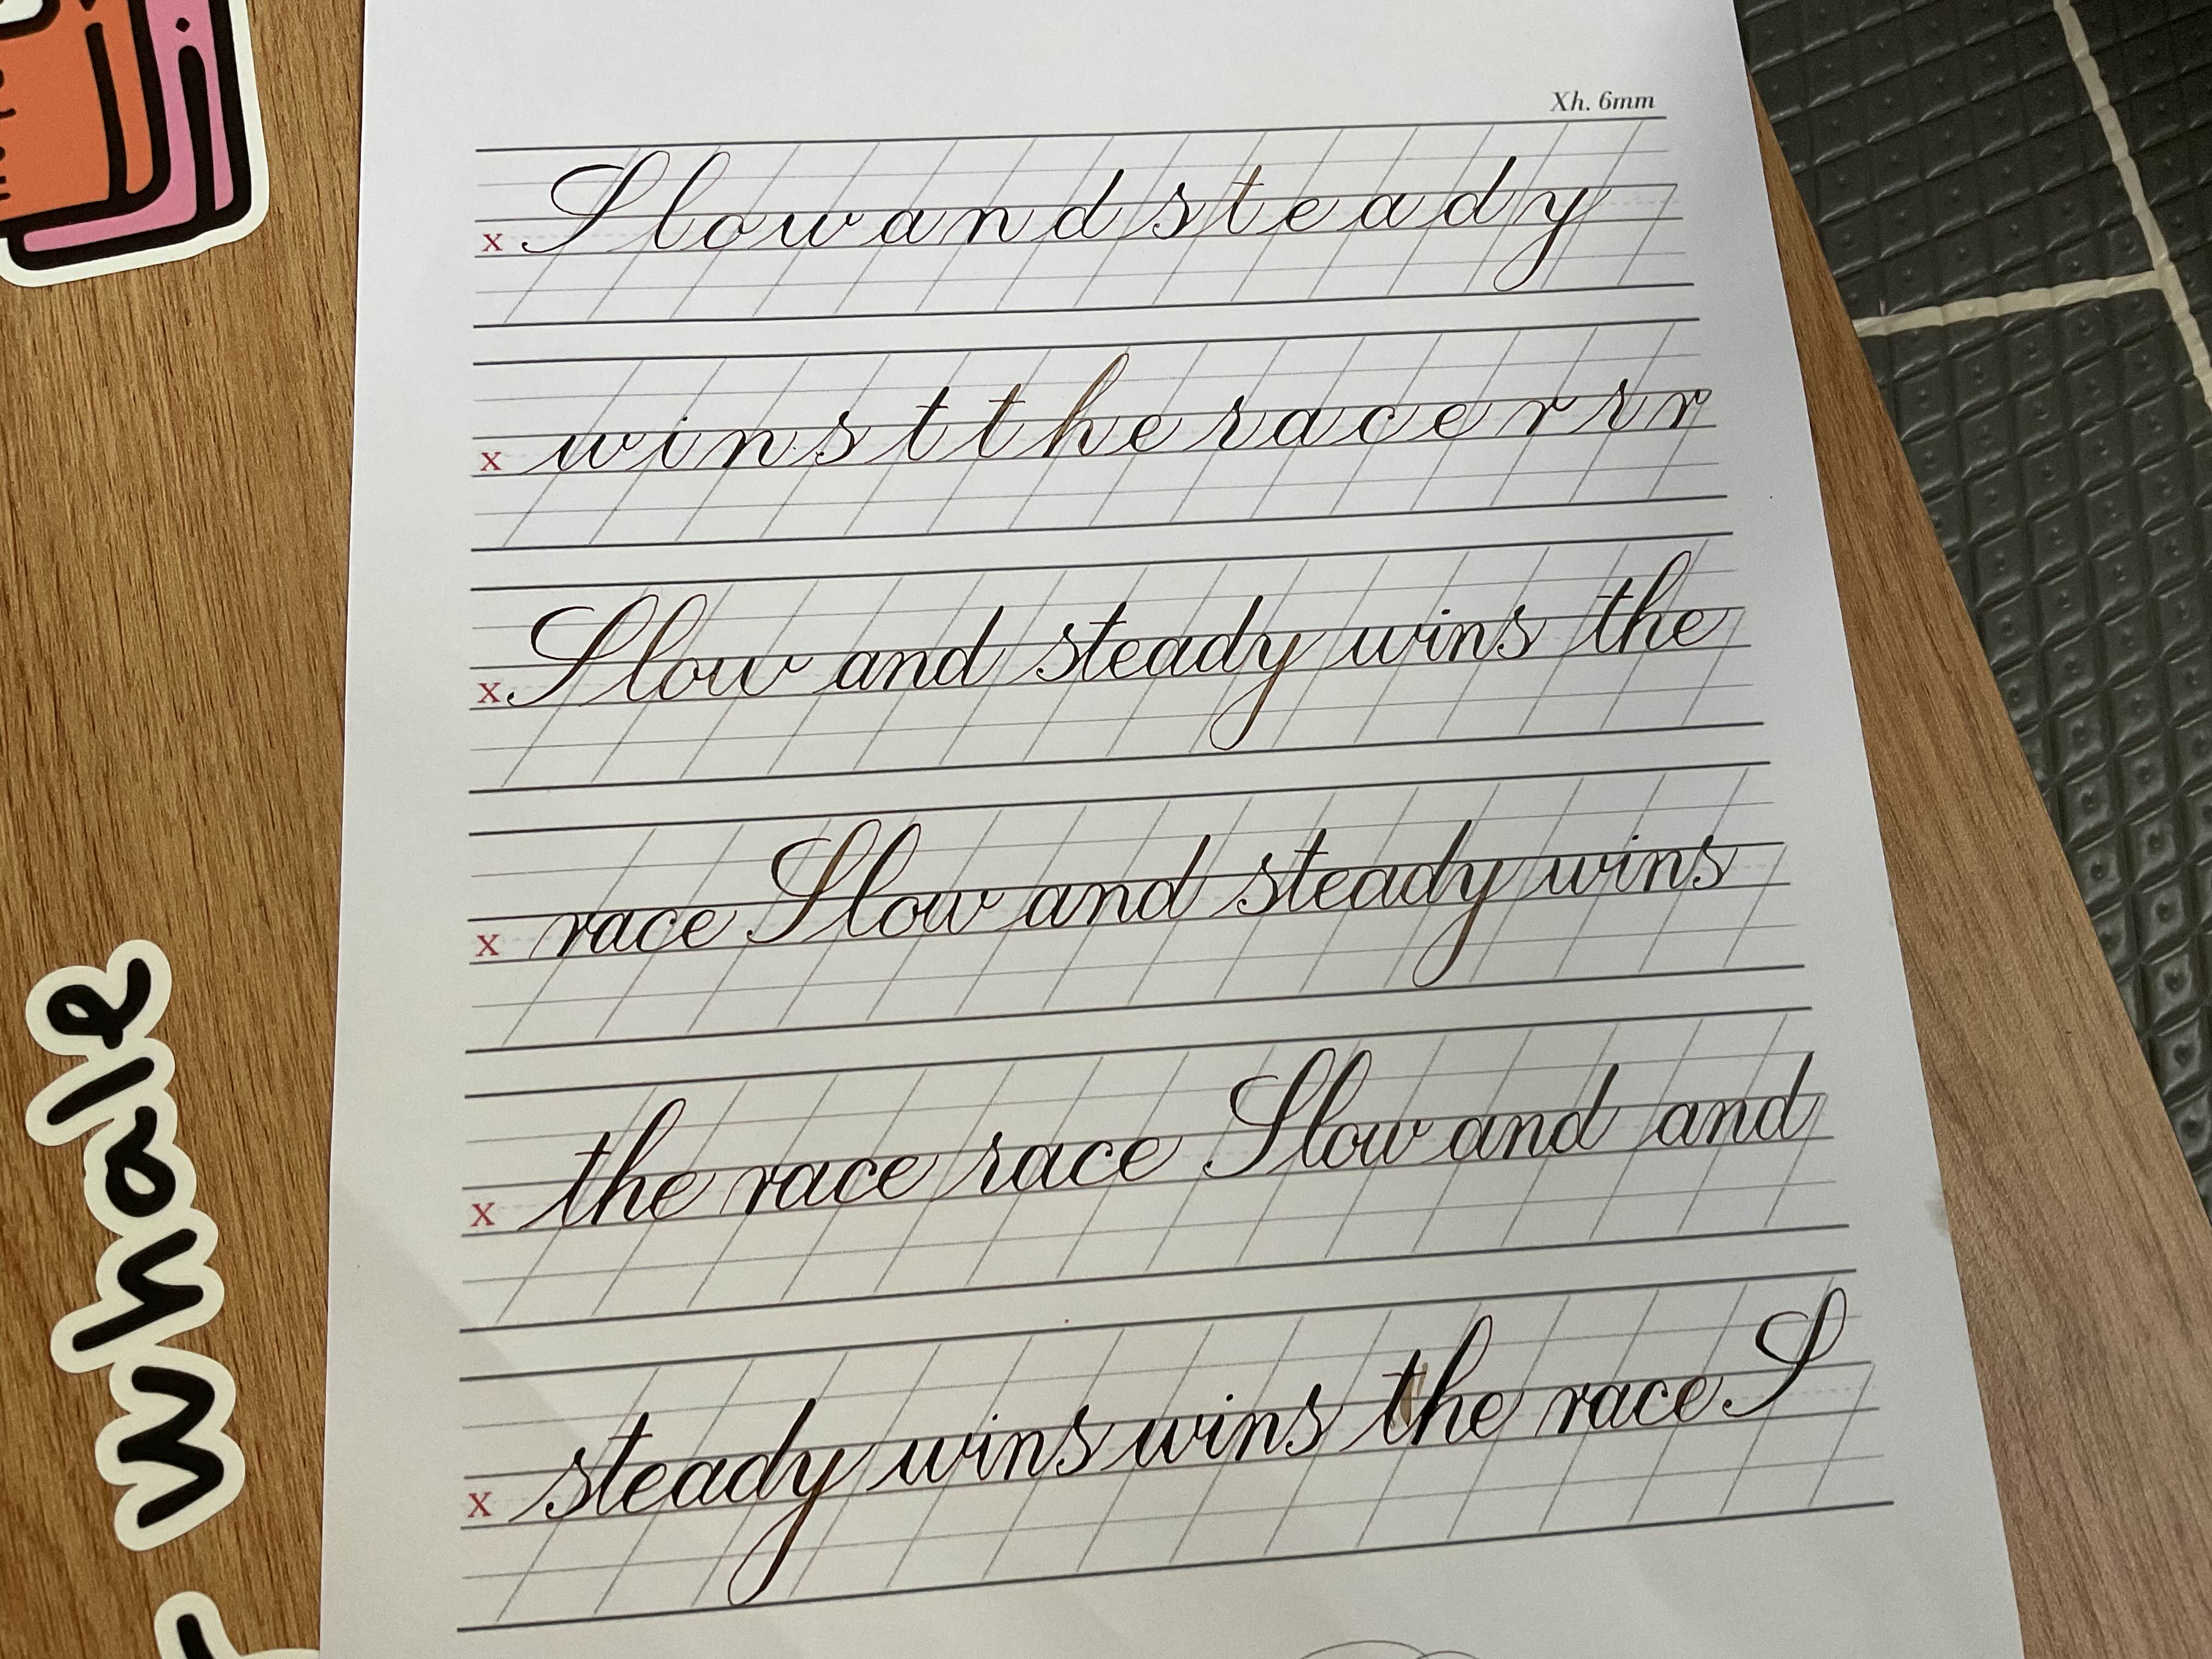 Xh. 6mm
x S l o w a n d s t e a d y
x w i n s t t h e r a c e r r r
x Slow and steady wins the
x race Slow and steady wins
x the race race Slow and and
x steady wins wins the race S
whale